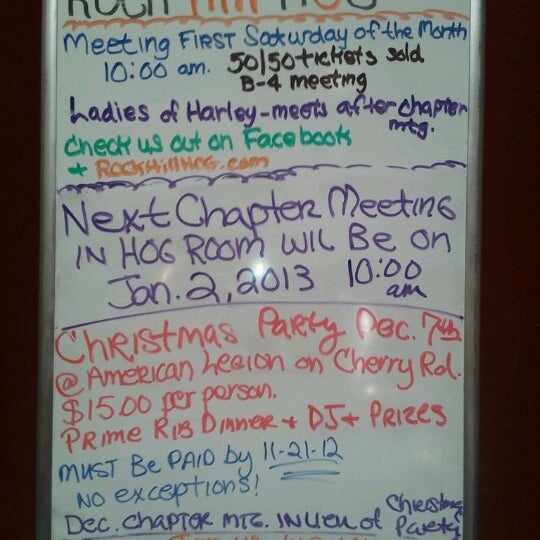 ROCK Hill HOG
Meeting FIRST Saturday of the Month
10:00 am. 50/50 tickets sold
B-4 meeting
Ladies of Harley-meets after chapter
mtg.
check us out on Facebook
+ ROCKHillHOG.com
Next Chapter Meeting
IN HOG ROOM WIL Be on
Jan. 2, 2013 10:00
am
Christmas Party Dec. 7th
@ American Legion on Cherry Rd.
$15.00 per person.
Prime Rib Dinner + DJ + Prizes
MUST Be PAID by 11-21-12
NO exceptions!
Dec. Chapter MTG. IN Lieu of Christmas
Party